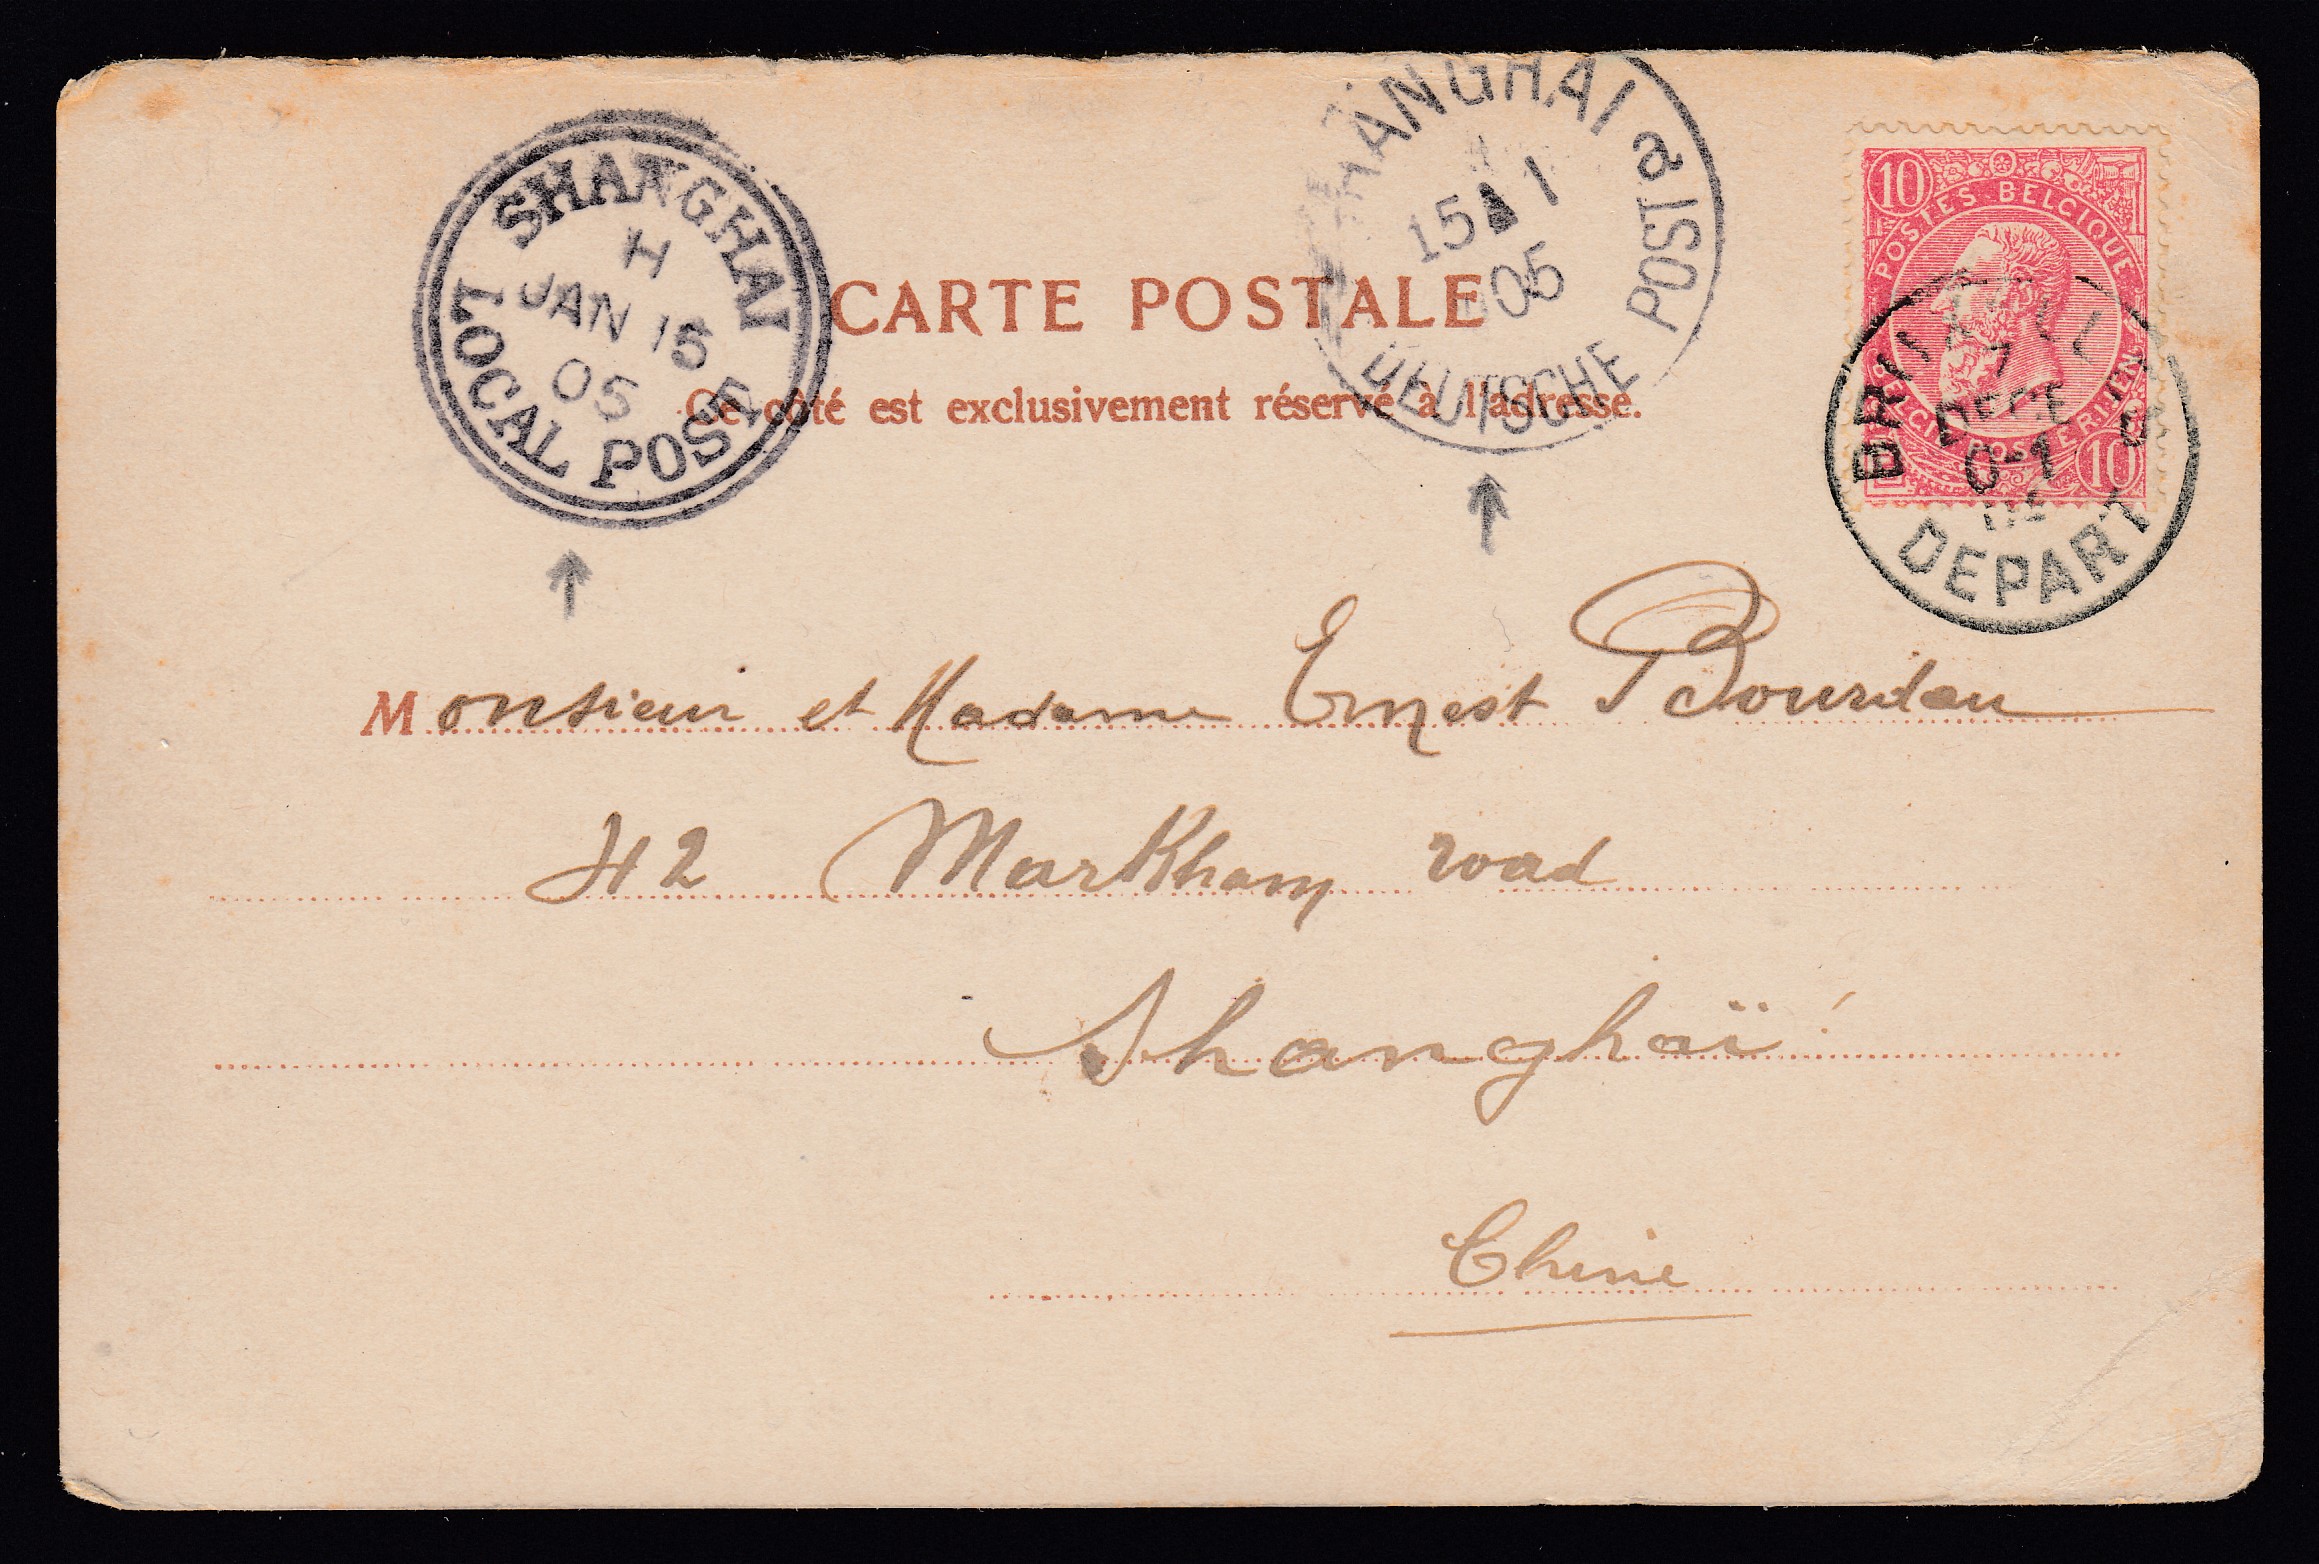 SHANGHAI
H
JAN 15
05
LOCAL POST
HANGHAI a
15 1
05
DEUTSCHE POST
10
POSTES BELGIQUE
BELGIË POSTERIJEN
10
7
DECE
0-1
DEPART
CARTE POSTALE
Ce côté est exclusivement réservé à l'adresse.
Monsieur et Madame Ernest Bourdeau
42 Markham road
Shanghaï
Chine